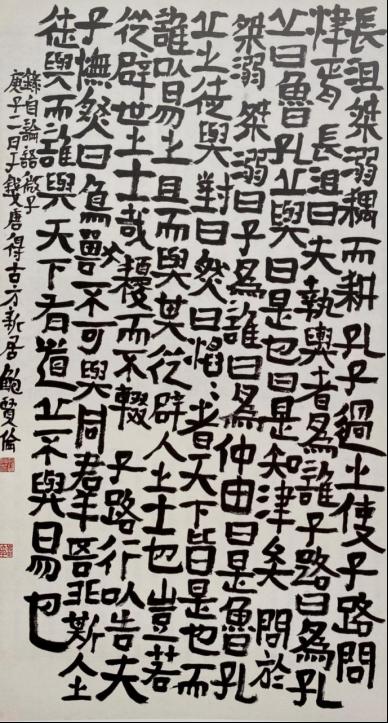 長沮桀溺耦而耕孔子過之使子路問
津焉長沮曰夫執輿者為誰子路曰為孔
丘曰魯孔丘與曰是也曰是知津矣問於
桀溺桀溺曰子為誰曰為仲由曰是魯孔
丘之徒與對曰然曰滔〻者天下皆是也而
誰以易之且而與其從辟人之士也豈若
從辟世之士哉耰而不輟子路行以告夫
子憮然曰鳥獸不可與同群吾非斯人之
徒與而誰與天下有道丘不與易也
錄自論語微子
庚子二月于錢唐得古方新居鮑賢倫